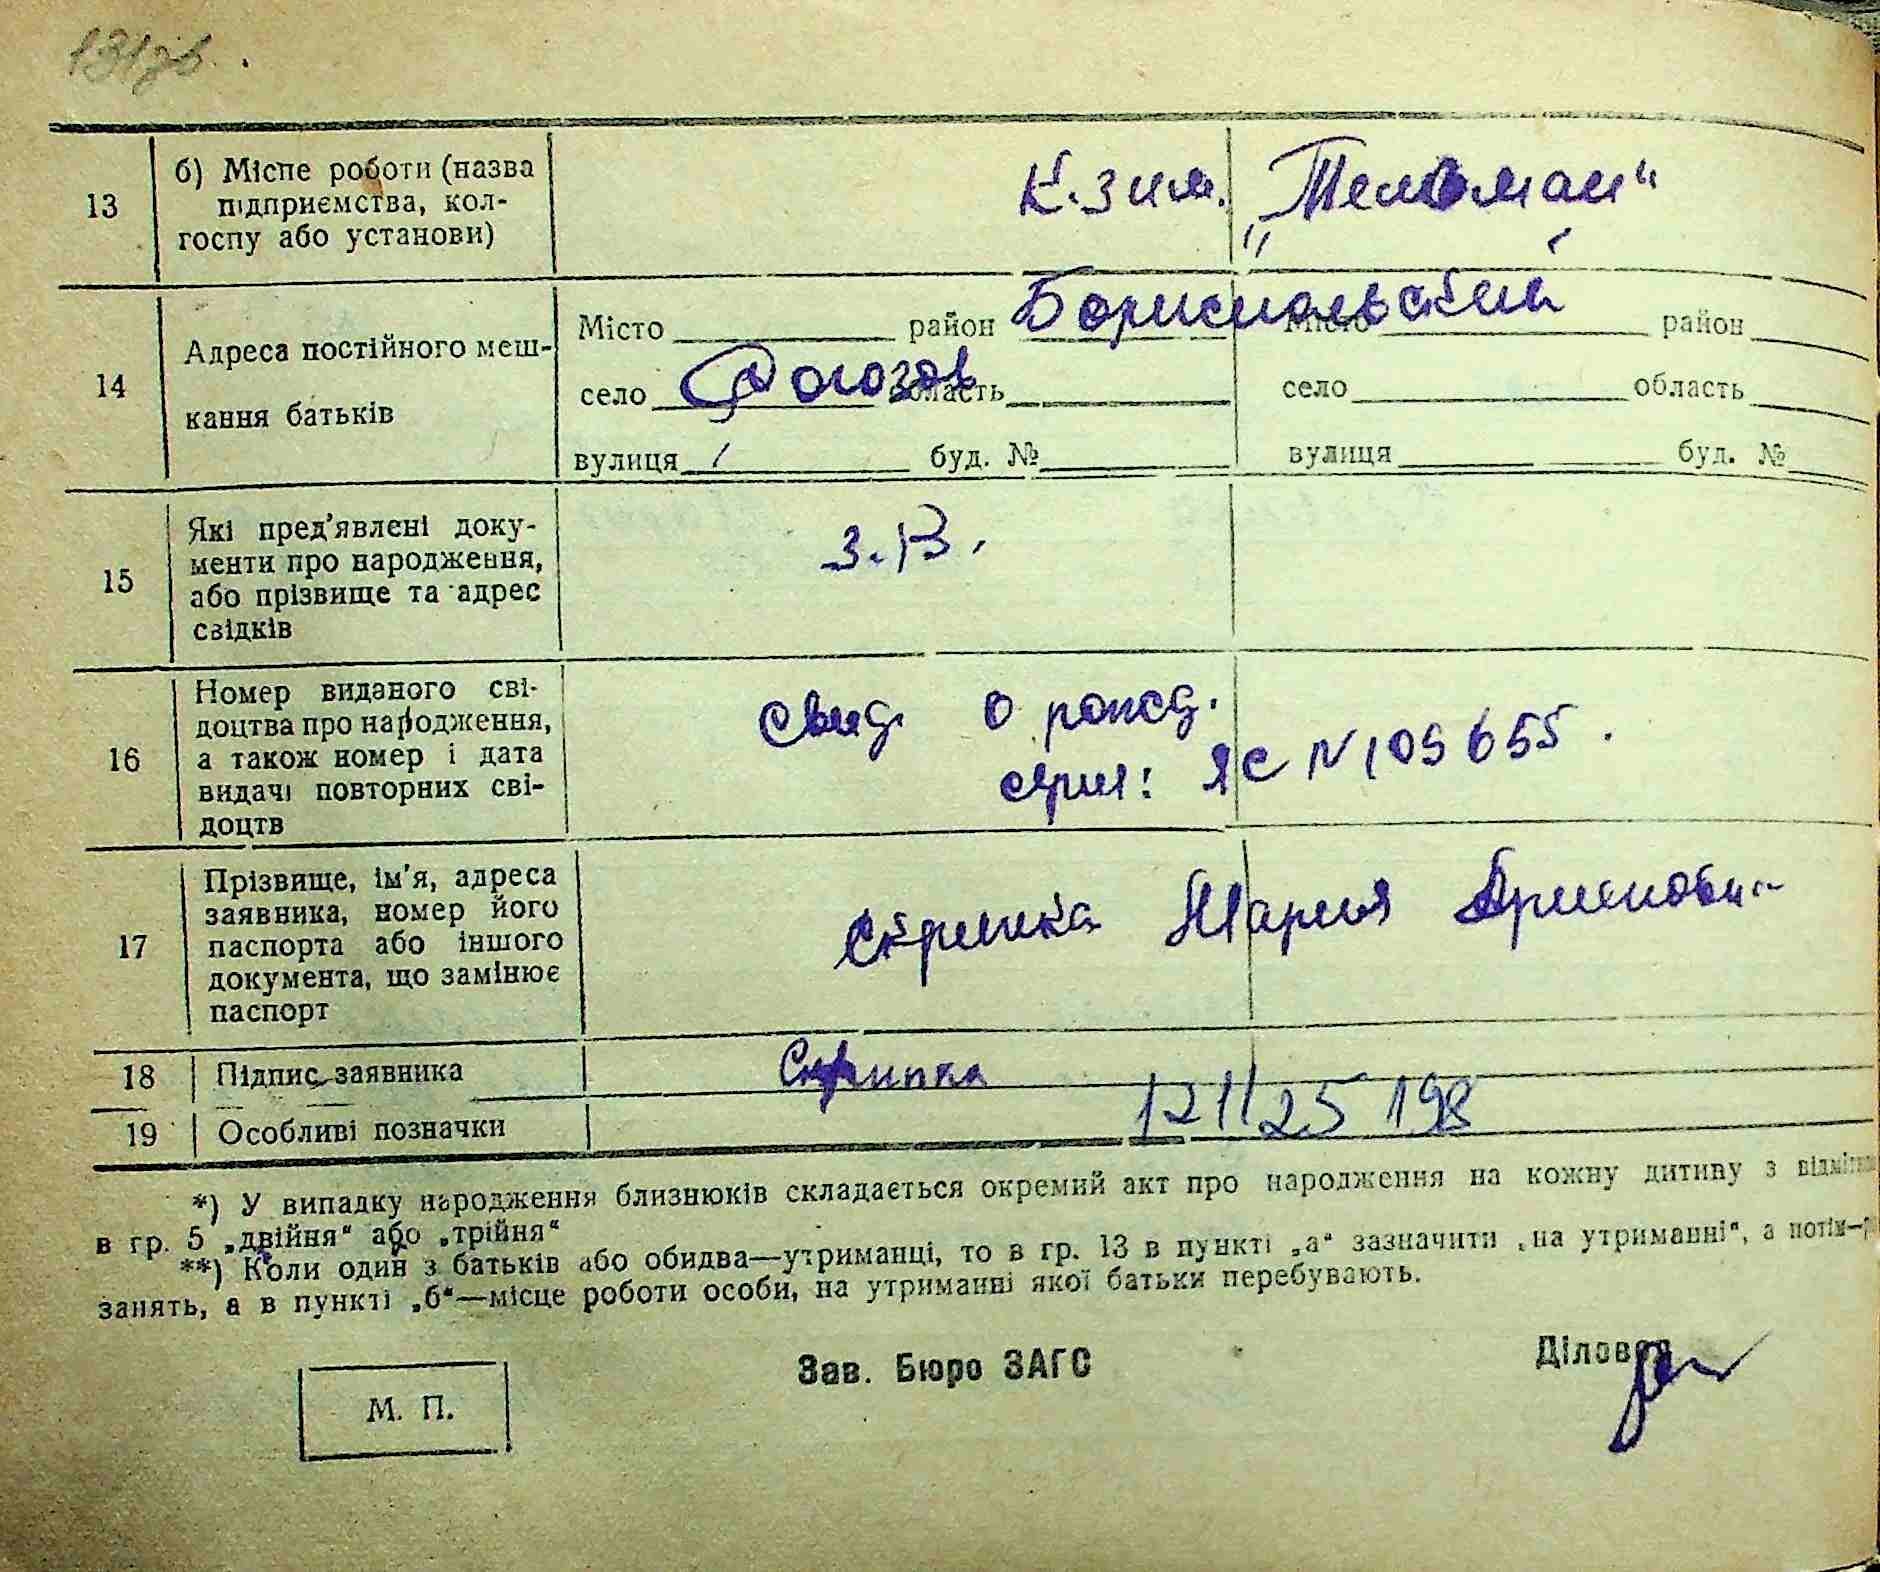 131зв.
13 б) Міспе роботи (назва
підприємства, кол-
госпу або установи)
К.з им. „Тельман“
14 Адреса постійного меш-
кання батьків
Місто район Бориспольский Місто район
село Рогозов область село область
вулиця буд. № вулиця буд. №
15 Які пред'явлені доку-
менти про народження,
або прізвище та адрес
свідків
З.В.
16 Номер виданого сві-
доцтва про народження,
а також номер і дата
видачі повторних сві-
доцтв
Свид. о рожд.
серия: ЯС N 109655.
17 Прізвище, ім'я, адреса
заявника, номер його
паспорта або іншого
документа, що замінює
паспорт
Скрипка Мария
18 Підпис заявника Скрипка
19 Особливі позначки 121/25 198
*) У випадку народження близнюків складається окремий акт про народження на кожну дитину з відміткою
в гр. 5 „двійня“ або „трійня“
**) Коли один з батьків або обидва—утриманці, то в гр. 13 в пункті „а“ зазначити „на утриманні“, а потім—
занять, а в пункті „б“—місце роботи особи, на утриманні якої батьки перебувають.
М. П.
Зав. Бюро ЗАГС
Діловод